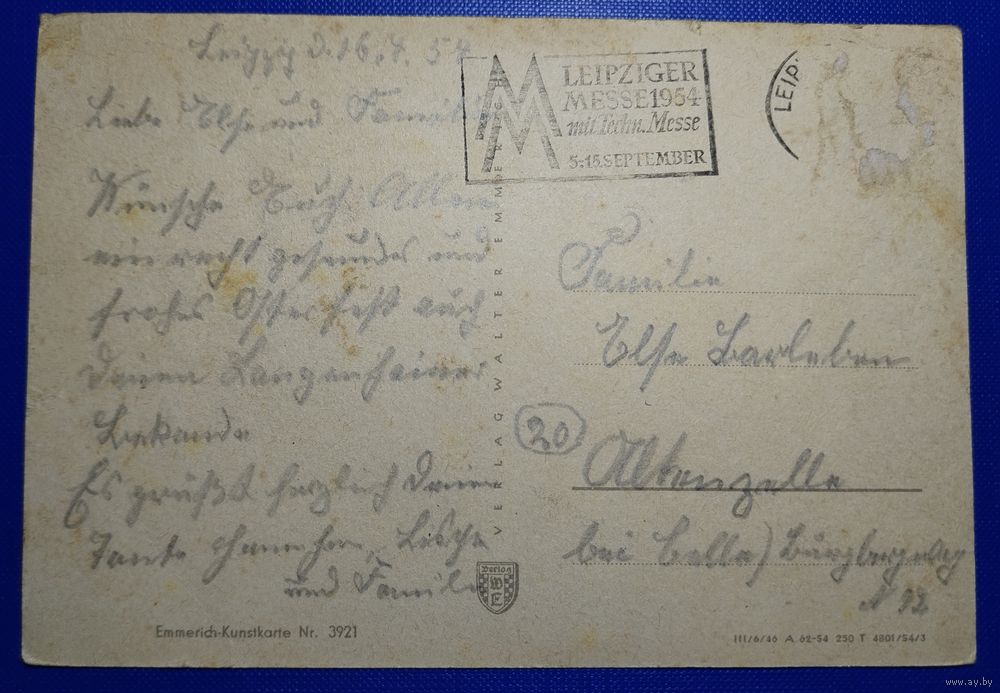 Leipzig d. 16.4.54
Liebe Else und Familie
Wünsche Euch Allen
ein recht gesundes und
frohes Osterfest auch
Deinen Langenheimer
Bekande
Es grüßt herzlich Deine
Tante Hannchen,
und Familie
LEIPZIGER
MESSE 1954
mit Techn. Messe
5.-15. SEPTEMBER
LEIP
VERLAG WALTER EMMERICH
Familie
Else Barleben
(20) Altenzelle
bei Celle) Burgbergweg
N 92
Verlag
WE
Emmerich-Kunstkarte Nr. 3921
III/6/46 A 62-54 250 T 4801/54/3
www.ay.by